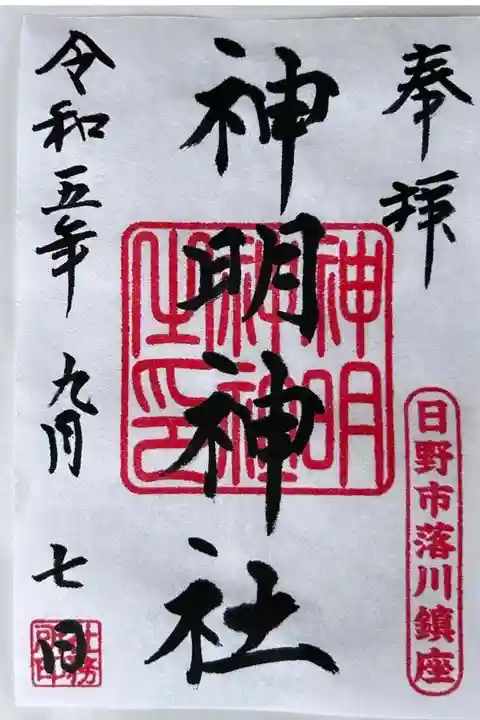 奉拝
日野市落川鎮座
神明神社
神明神社之印
令和五年九月七日
社務所印